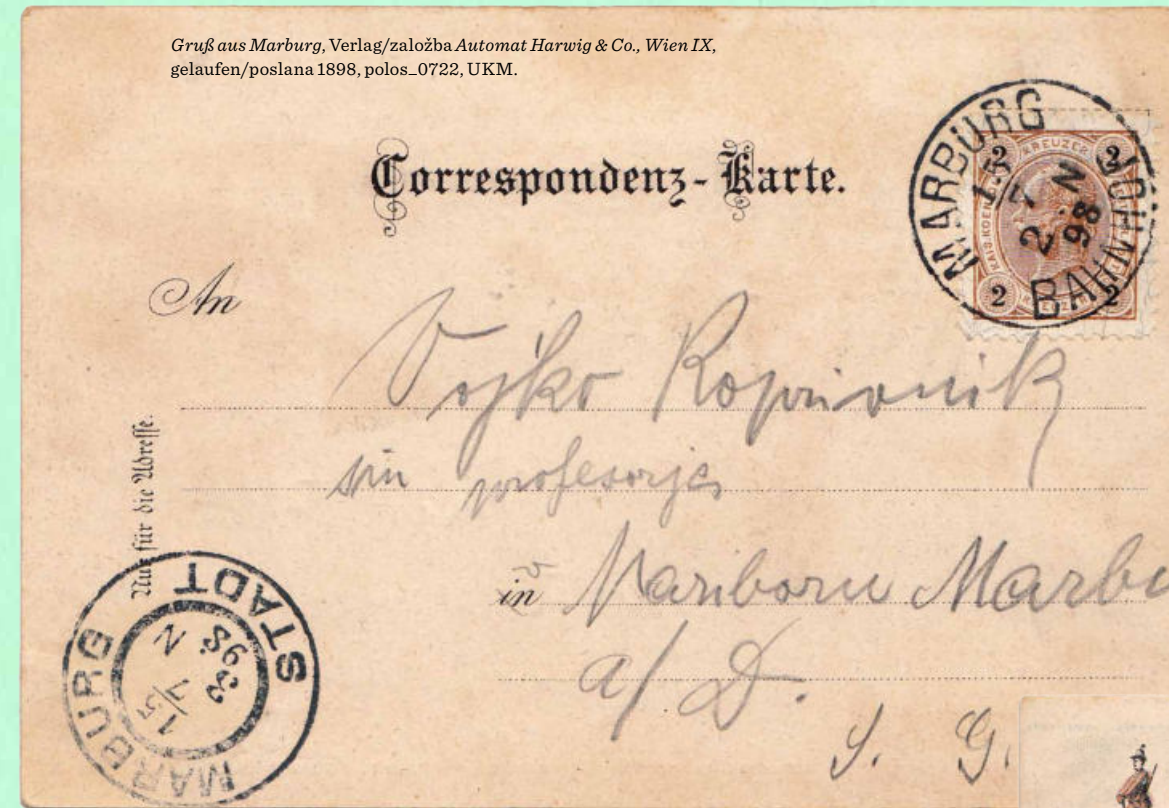 Gruß aus Marburg, Verlag/založba Automat Harwig & Co., Wien IX,
gelaufen/poslana 1898, polos_0722, UKM.
Correspondenz-Karte.
MARBURG BAHNHOF
15/7 98 2.N
KREUZER
2 2
2 2
An
Vojko Koprivnik
sin profesorjev
Nur für die Adresse.
in v Mariboru Marbu
a/D.
S. G.
MARBURG STADT
15/7 98
N